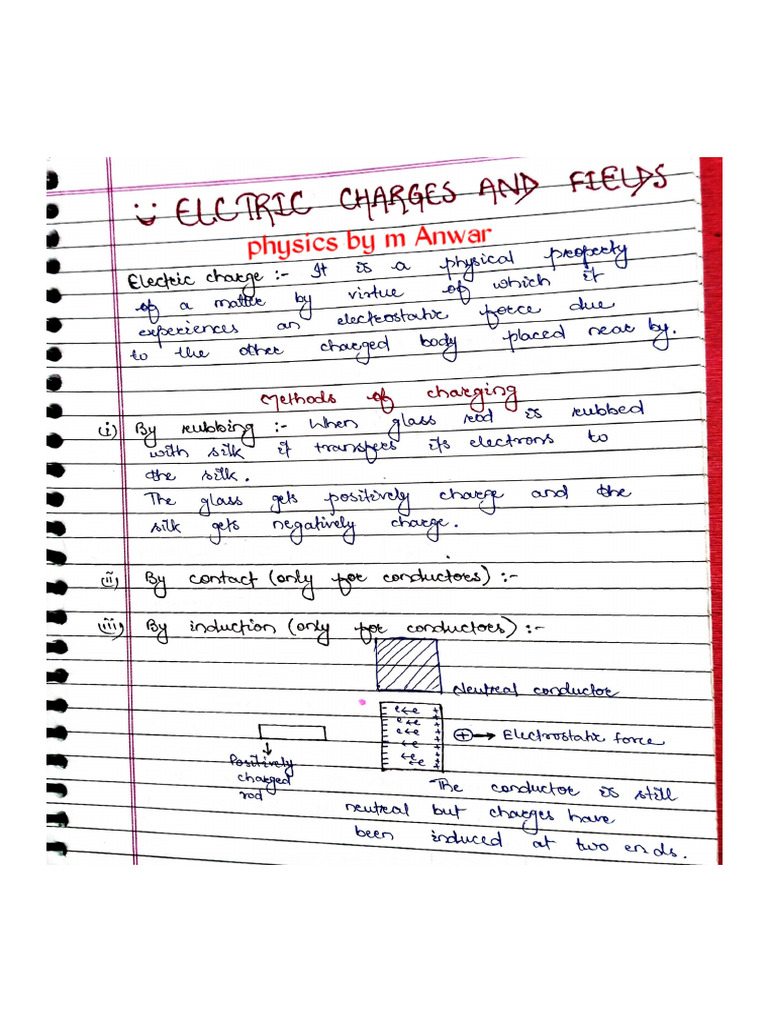 ELCTRIC CHARGES AND FIELDS
physics by m Anwar
Electric charge :- It is a physical property
of a matter by virtue of which it
experiences an electrostatic force due
to the other charged body placed near by.
Methods of charging
(i) By rubbing :- When glass rod is rubbed
with silk it transfers its electrons to
the silk.
The glass gets positively charge and the
silk gets negatively charge.
(ii) By contact (only for conductors) :-
(iii) By induction (only for conductors) :-
Neutral conductor
e←e +
e←e +
e←e +
←e +
←e
←e +
⊕→ Electrostatic force
Positively
charged
rod
The conductor is still
neutral but charges have
been induced at two ends.